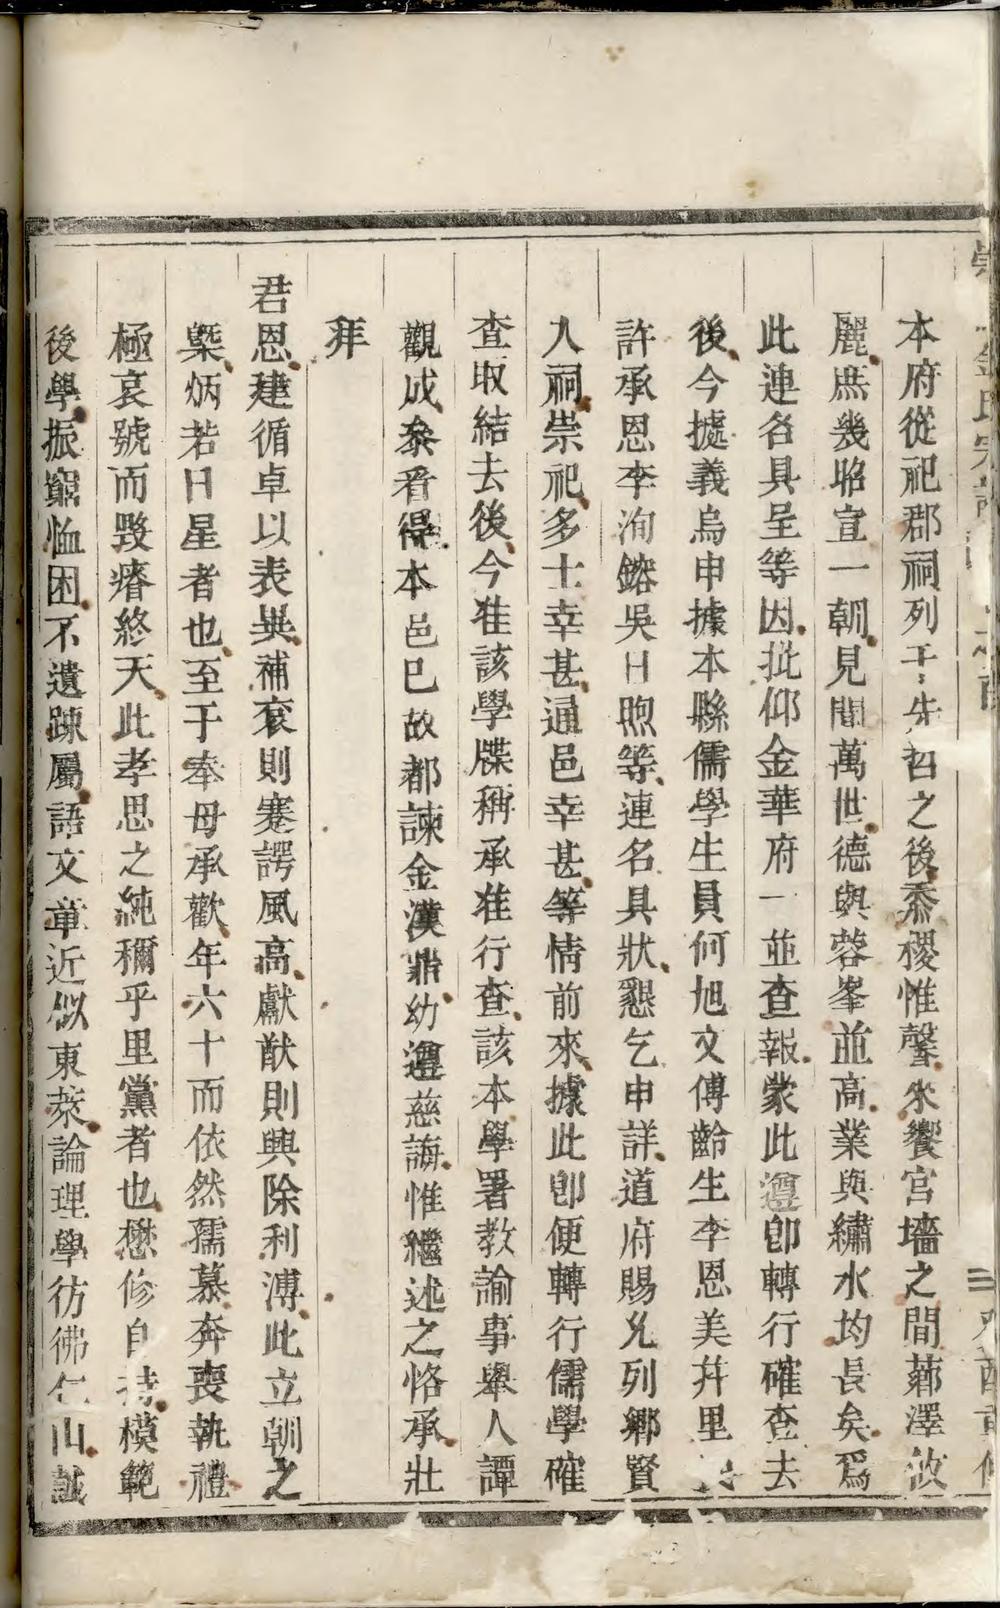 本府從祀郡祠列于先哲之後黍稷惟馨來饗宮墻之間薌澤攸
麗庶幾昭宣一朝見聞萬世德與蓉峯並高業與繡水均長矣爲
此連名具呈等因批仰金華府一並查報蒙此遵卽轉行確查去
後今據義烏申據本縣儒學生員何旭文傅齡生李恩美幷里
許承恩李洵鎔吳日煦等連名具狀懇乞申詳道府賜允列鄉賢
入祠崇祀多士幸甚通邑幸甚等情前來據此卽便轉行儒學確
查取結去後今准該學牒稱承准行查該本學署教諭事舉人譚
觀成叅看得本邑已故都諫金漢鼎幼遵慈誨惟繼述之恪承壯
拜
君恩建循卓以表異補袞則蹇諤風高獻猷則興除利溥此立朝之
槩炳若日星者也至于奉母承歡年六十而依然孺慕奔喪執禮
極哀號而毀瘠終天此孝思之純稱乎里黨者也懋修自持模範
後學振窮恤困不遺踈屬語文章近似東萊論理學彷彿仁山誠